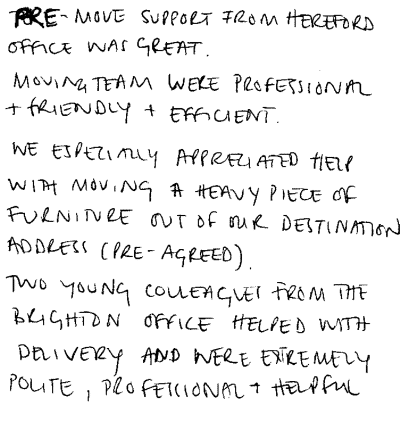 PRE-MOVE SUPPORT FROM HEREFORD
OFFICE WAS GREAT.
MOVING TEAM WERE PROFESSIONAL
+ FRIENDLY + EFFICIENT.
WE ESPECIALLY APPRECIATED HELP
WITH MOVING A HEAVY PIECE OF
FURNITURE OUT OF OUR DESTINATION
ADDRESS (PRE-AGREED).
TWO YOUNG COLLEAGUES FROM THE
BRIGHTON OFFICE HELPED WITH
DELIVERY AND WERE EXTREMELY
POLITE, PROFESSIONAL + HELPFUL